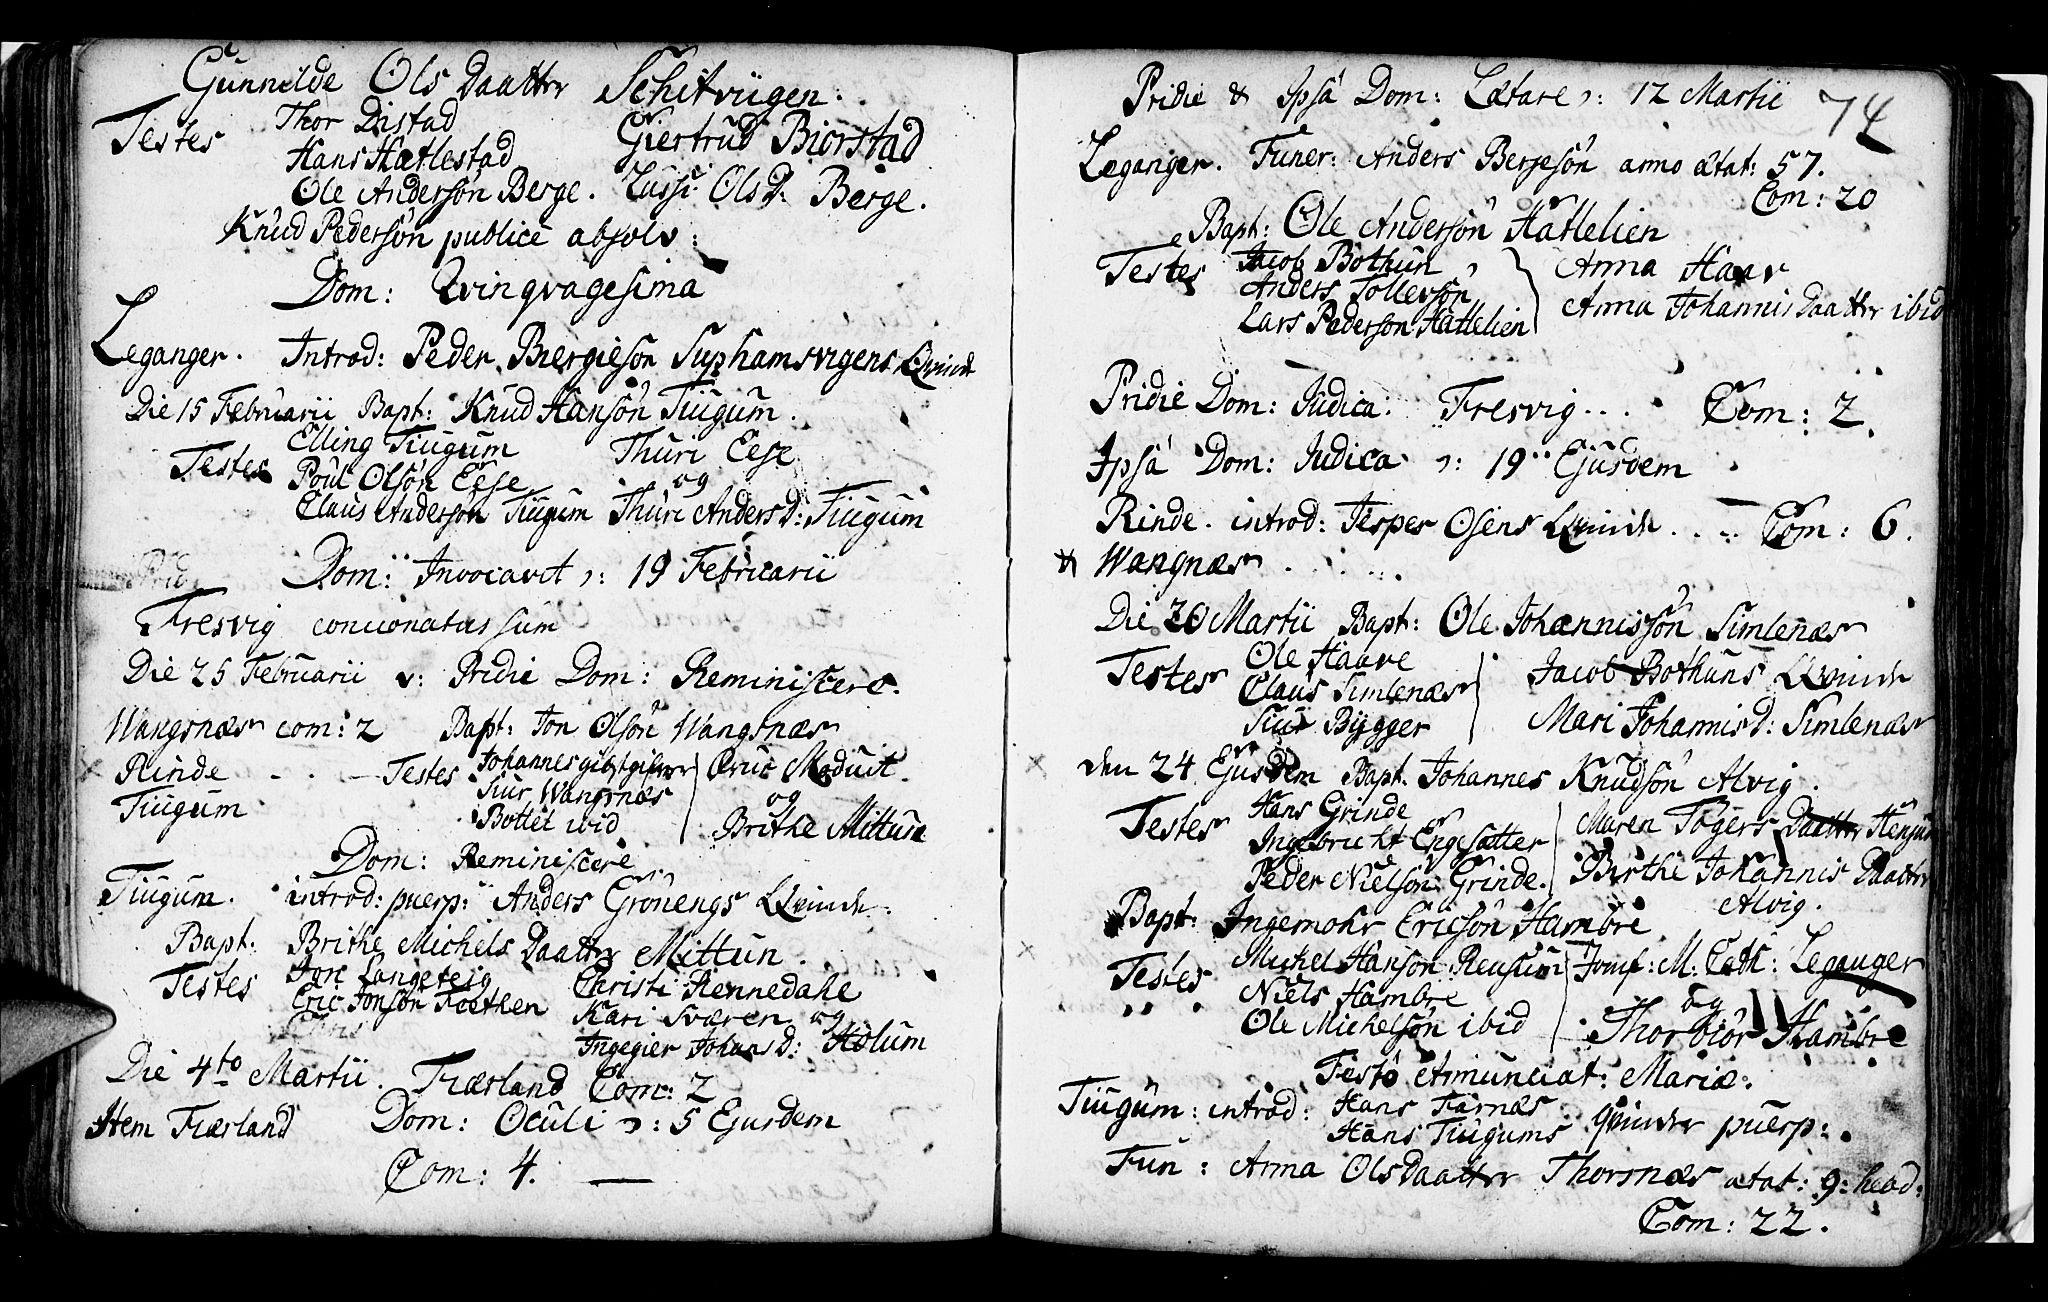 Gunnilde Ols Daatter Schitviigen.
Testes Thor Distad Giertrud Biorstad
Hans Hætlestad
Ole Andersøn Berge. Zussi Ols D: Berge.
Knud Pedersøn publice absolv:
Dom: Qvinqvagesima
Leganger. Introd: Peder Biergiesøn Suphamsvigens Qvinde
Die 15 Februarii Bapt: Knud Hansøn Tiugum.
Testes Elling Tiugum Thuri Eese
Poul Olsøn Eese og
Claus Andersøn Tiugum Thuri Anders D: Tiugum
Dom: Invocavit ɔ: 19 Februarii
Fresvig concionatus sum
Die 25 Februarii ɔ: Pridie Dom: Reminiscere.
Wangsnæs com: 2 Bapt: Jon Olsøn Wangsnæs
Rinde - - - Testes Johannes
Tiugum Siur Wangsnæs og
Bottel ibid Brithe Mittun
Dom: Reminiscere
Tiugum. introd: puerp: Anders Grønengs Qvinde.
Bapt: Brithe Michels Daatter Mittun.
Testes Jon Langeteig Christi Rennedahl
Eric Jonsøn Kari Sværen og
Ingegier Johans D: Holum
Die 4to Martii. Fiærland Com: 2
Item Fiærland Dom: Oculi ɔ: 5 Ejusdem
Com: 4.
Pridie & Ipsa Dom: Lætare ɔ: 12 Martii 74
Leganger. Funer: Anders Bergesøn anno ætat: 57.
Com: 20
Bapt: Ole Andersøn Hatlelien
Testes Jacob Bothun Anna Haav
Anders Tollevsøn Anna Johannis Daatter ibid
Lars Pedersøn Hatlelien
Pridie Dom: Judica: Fresvig... Com: 2.
Ipsa Dom: Judica ɔ: 19 Ejusdem
Rinde. introd: Jesper Osens Qvinde. . . Com: 6.
& Wangnæs . . .
Die 20 Martii Bapt: Ole Johannissøn Simlenæs
Testes Ole Haave Jacob Bothuns Qvinde
Claus Simlenæs Mari Johannis D: Simlenæs
Siur Bygger
den 24 Ejusdem Bapt: Johannes Knudsøn Alvig.
Testes Hans Grinde Maren Togers Daatter
Ingebricht Engesætter
Peder Nielsøn Grinde. Birthe Johannis Daatter
Alvig.
Bapt: Ingemohr Ericsøn Hambre
Testes Michel Hansøn Jomf: M: Cath: Leganger
Niels Hambre og
Ole Michelsøn ibid Thorbiør Hambre
Festo Annunciat: Mariæ:
Tiugum: introd: Hans Farnæs
Hans Tiugums qvinder puerp:
Fun: Anna Ols Daatter Thorsnæs ætat: 9: hebd:
Com: 22.